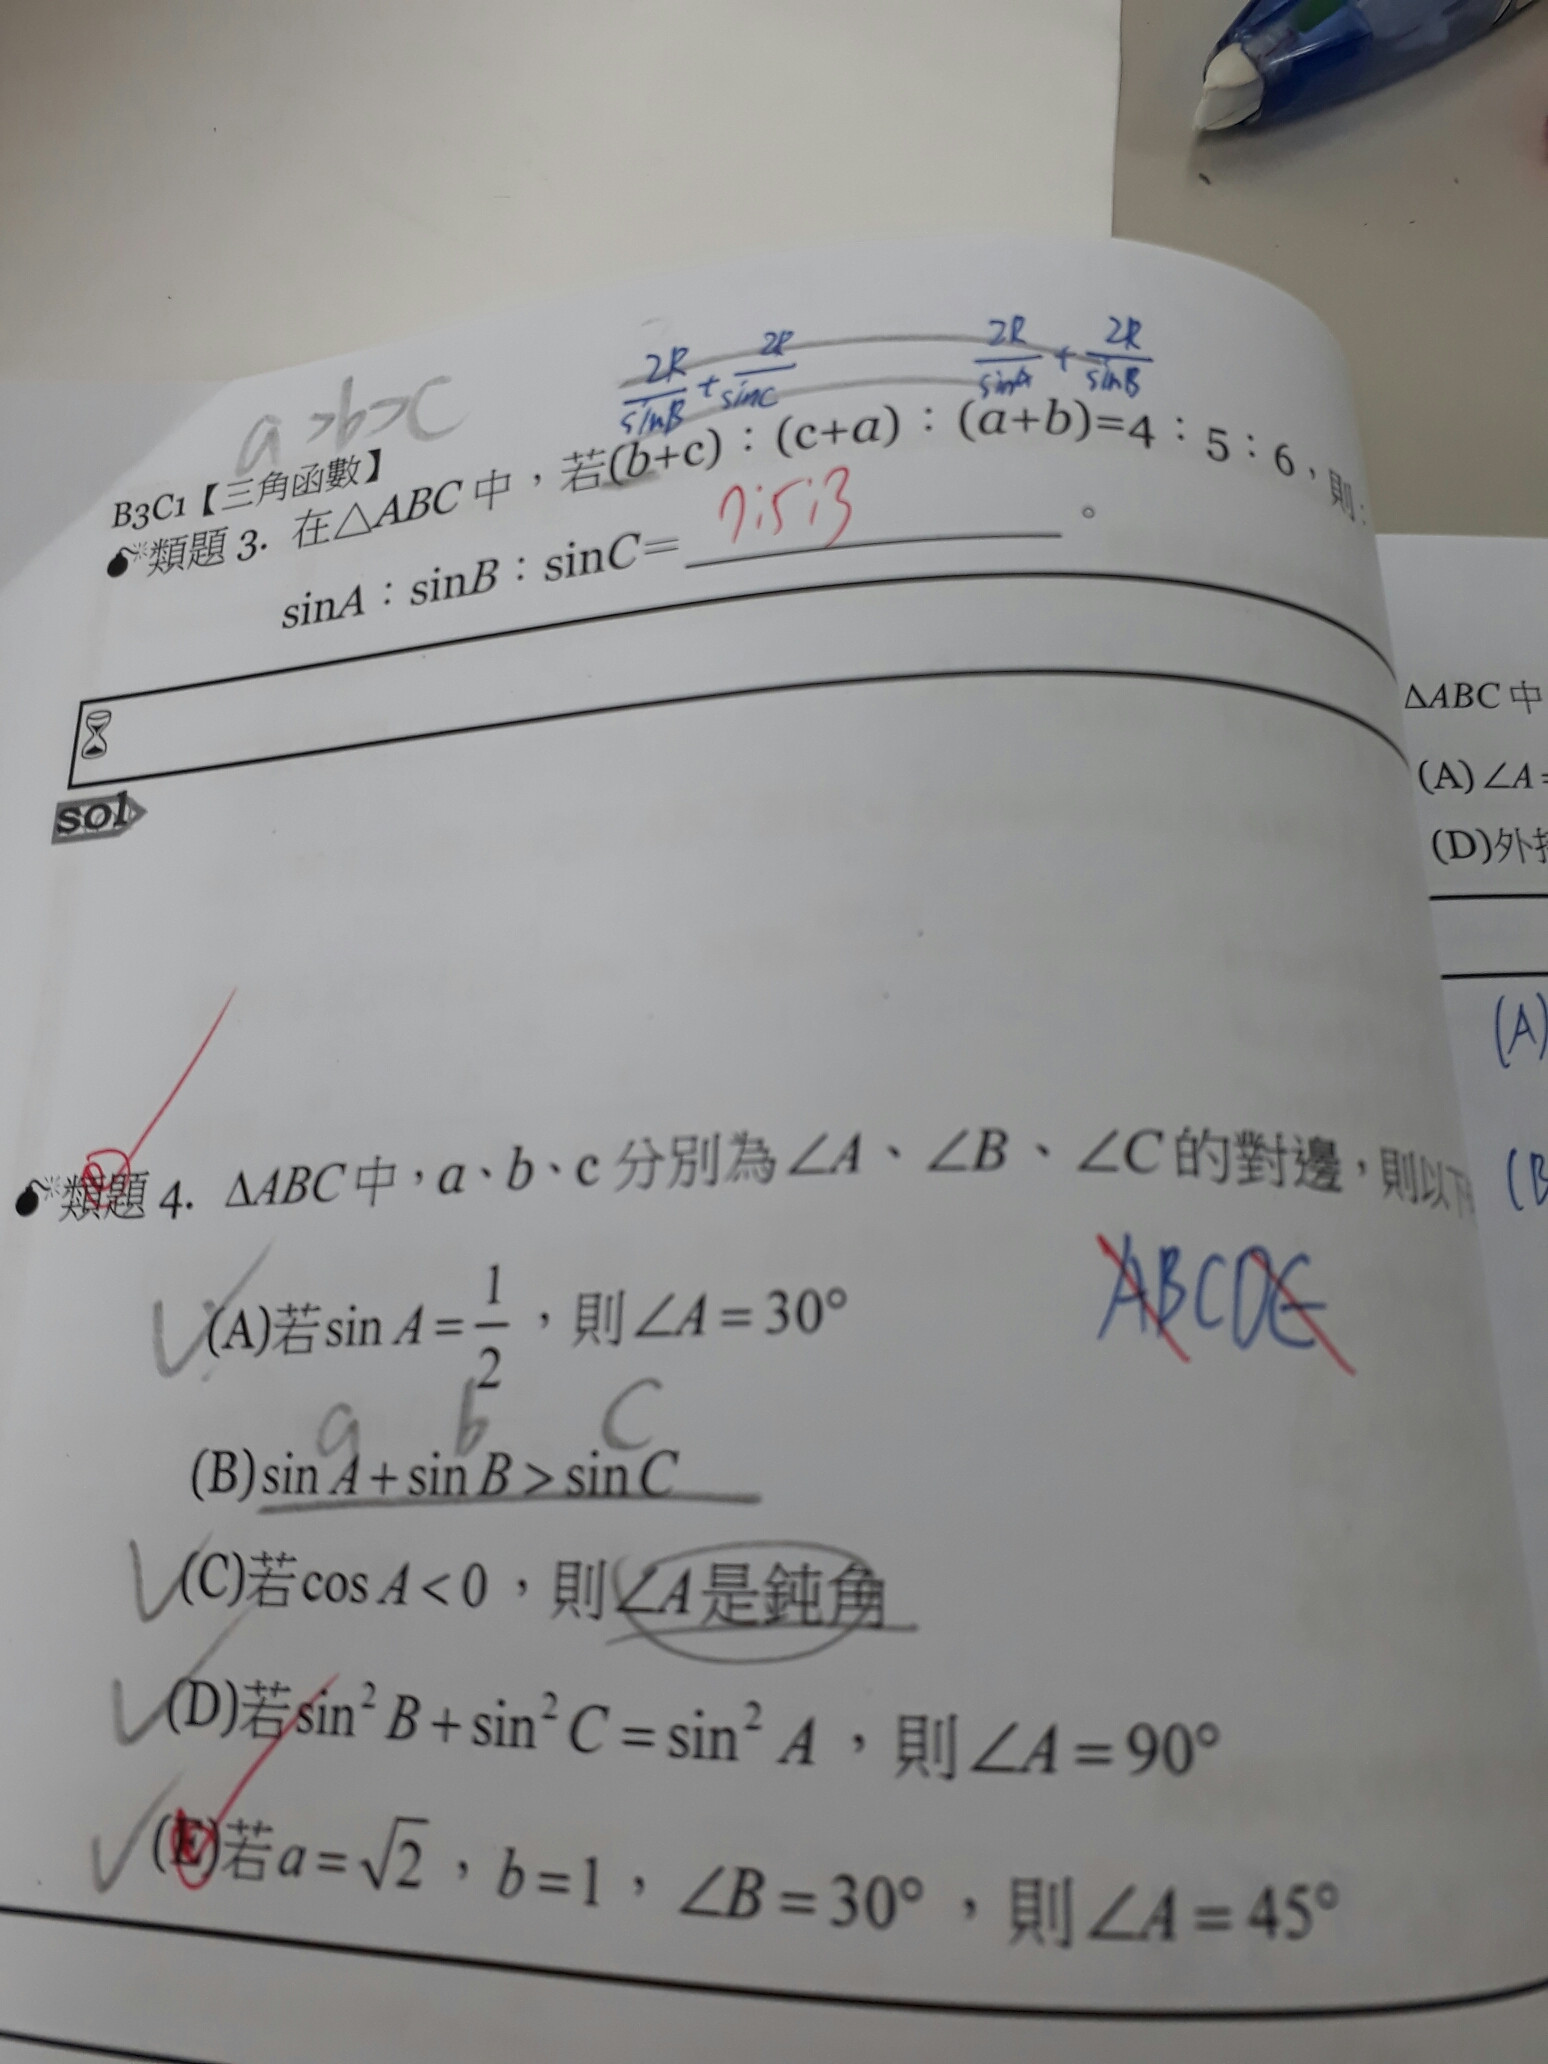 2R/sinB + 2R/sinC  2R/sinA + 2R/sinB
a>b>c
B3C1【三角函數】
類題 3. 在△ABC 中，若(b+c)：(c+a)：(a+b)=4：5：6，則：
sinA：sinB：sinC= 7:5:3 。
sol
類題 4. ΔABC 中，a、b、c 分別為∠A、∠B、∠C 的對邊，則以下
ABCDE
(A)若 sin A = 1/2，則∠A = 30°
a b c
(B) sin A + sin B > sin C
(C)若 cos A < 0，則∠A 是鈍角
(D)若 sin² B + sin² C = sin² A，則∠A = 90°
(E)若 a = √2，b = 1，∠B = 30°，則∠A = 45°
ΔABC 中
(A) ∠A =
(D)外接
(A)
(B